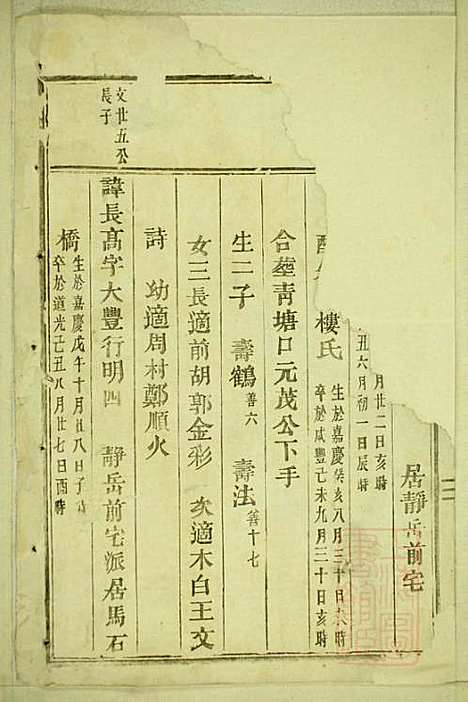 居靜岳前宅
月廿二日亥時
丑六月初一日辰時
樓氏 生於嘉慶癸亥八月三十日未時
卒於咸豐己未九月三十日亥時
合塟青塘口元茂公下手
生二子 壽鶴善六 壽法善十七
女三長適前胡郭金彩 次適木白王文
詩 幼適周村鄭順火
文廿五公
長子
諱長高字大豐行明四 靜岳前宅派居馬石
橋 生於嘉慶戊午十月廿八日子時
卒於道光己丑八月廿七日酉時